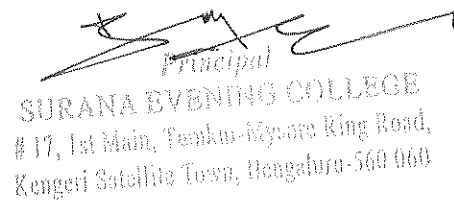 Principal
SURANA EVENING COLLEGE
# 17, 1st Main, Tumkur-Mysore Ring Road,
Kengeri Satellite Town, Bengaluru-560 060